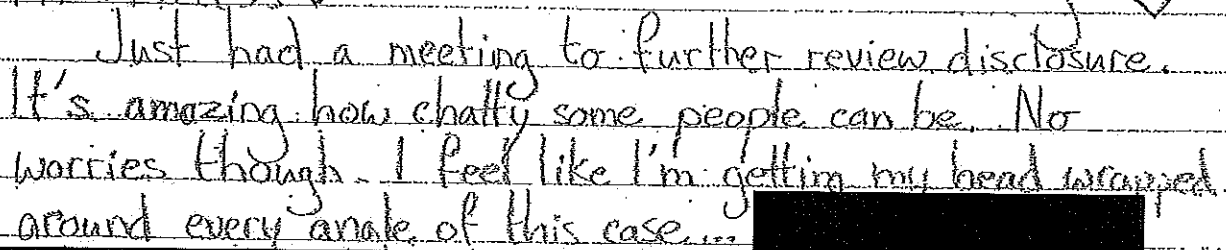 Just had a meeting to further review disclosure.
It's amazing how chatty some people can be. No
worries though. I feel like I'm getting my head wrapped
around every angle of this case...